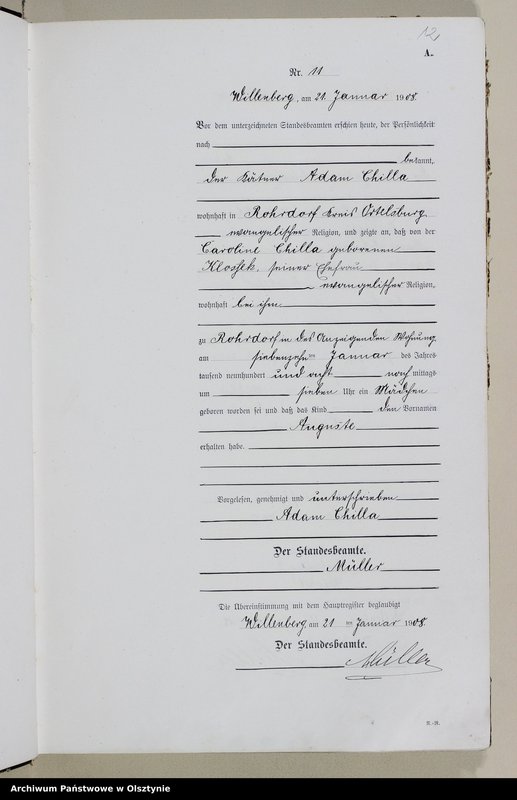 12
A.
Nr. 11
Willenberg, am 21. Januar 1908.
Vor dem unterzeichneten Standesbeamten erschien heute, der Persönlichkeit
nach
bekannt,
der Kätner Adam Chilla
wohnhaft in Rohrdorf Kreis Ortelsburg,
evangelischer Religion, und zeigte an, daß von der
Caroline Chilla geborenen
Klossek, seiner Ehefrau
evangelischer Religion,
wohnhaft bei ihm
zu Rohrdorf in des Anzeigenden Wohnung,
am siebenzehn ten Januar des Jahres
tausend neunhundert und acht nachmittags
um sieben Uhr ein Mädchen
geboren worden sei und daß das Kind den Vornamen
Auguste
erhalten habe.
Vorgelesen, genehmigt und unterschrieben
Adam Chilla
Der Standesbeamte.
Müller
Die Übereinstimmung mit dem Hauptregister beglaubigt
Willenberg, am 21 ten Januar 1908.
Der Standesbeamte.
Müller
R.-R.
Archiwum Państwowe w Olsztynie